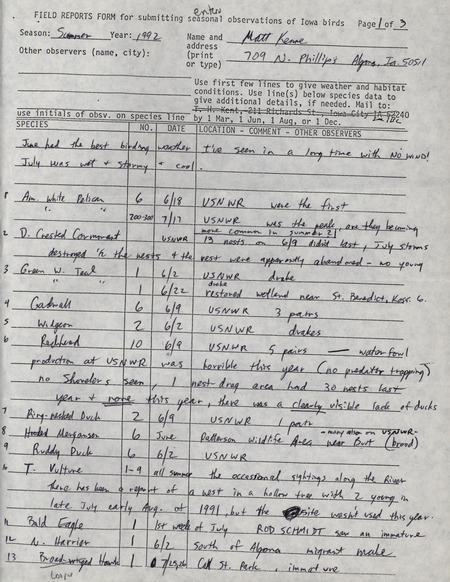 enter
FIELD REPORTS FORM for submitting seasonal observations of Iowa birds Page 1 of 3
Season: Summer Year: 1992 Name and Matt Kenne
Other observers (name, city): address
(print 709 N. Phillips Algona, Ia. 50511
or type)
Use first few lines to give weather and habitat
conditions. Use line(s) below species data to
give additional details, if needed. Mail to:
T. H. Kent, 211 Richards St., Iowa City IA 52240
use initials of obsv. on species line by 1 Mar, 1 Jun, 1 Aug, or 1 Dec.
SPECIES NO. DATE LOCATION - COMMENT - OTHER OBSERVERS
June had the best birding weather I've seen in a long time with NO WIND!
July was wet & stormy & cool.
1 Am. White Pelican 6 6/18 USNWR were the first
" " 200-300 7/17 USNWR was the peak, are they becoming
more common in summer?
2 D. Crested Cormorant USNWR 19 nests on 6/9 didn't last, July storms
destroyed ½ the nests & the rest were apparently abandoned - no young
3 Green W. Teal 1 6/2 USNWR drake
1 6/22 drake restored wetland near St. Benedict, Koss. Co.
4 Gadwall 6 6/9 USNWR 3 pairs
5 Widgeon 2 6/2 USNWR drakes
6 Redhead 10 6/9 USNWR 5 pairs — waterfowl
production at USNWR was horrible this year (no predator trapping)
no Shovelers seen, 1 nest drag area had 30 nests last
year & none this year, there was a clearly visible lack of ducks
7 Ring-necked Duck 2 6/9 USNWR 1 pair
8 Hooded Merganser 6 June Patterson Wildlife Area near Burt (brood) - many also on USNWR -
9 Ruddy Duck 6 6/2 USNWR
10 T. Vulture 1-9 all summer the occasional sightings along the River
there has been a report of a nest in a hollow tree with 2 young in
late July early Aug. of 1991, but the site wasn't used this year.
11 Bald Eagle 1 1st week of July ROD SCHMIDT saw an immature
12 N. Harrier 1 6/2 South of Algona migrant male
13 Broad-winged Hawk 1 7/25 Call St. Park, immature